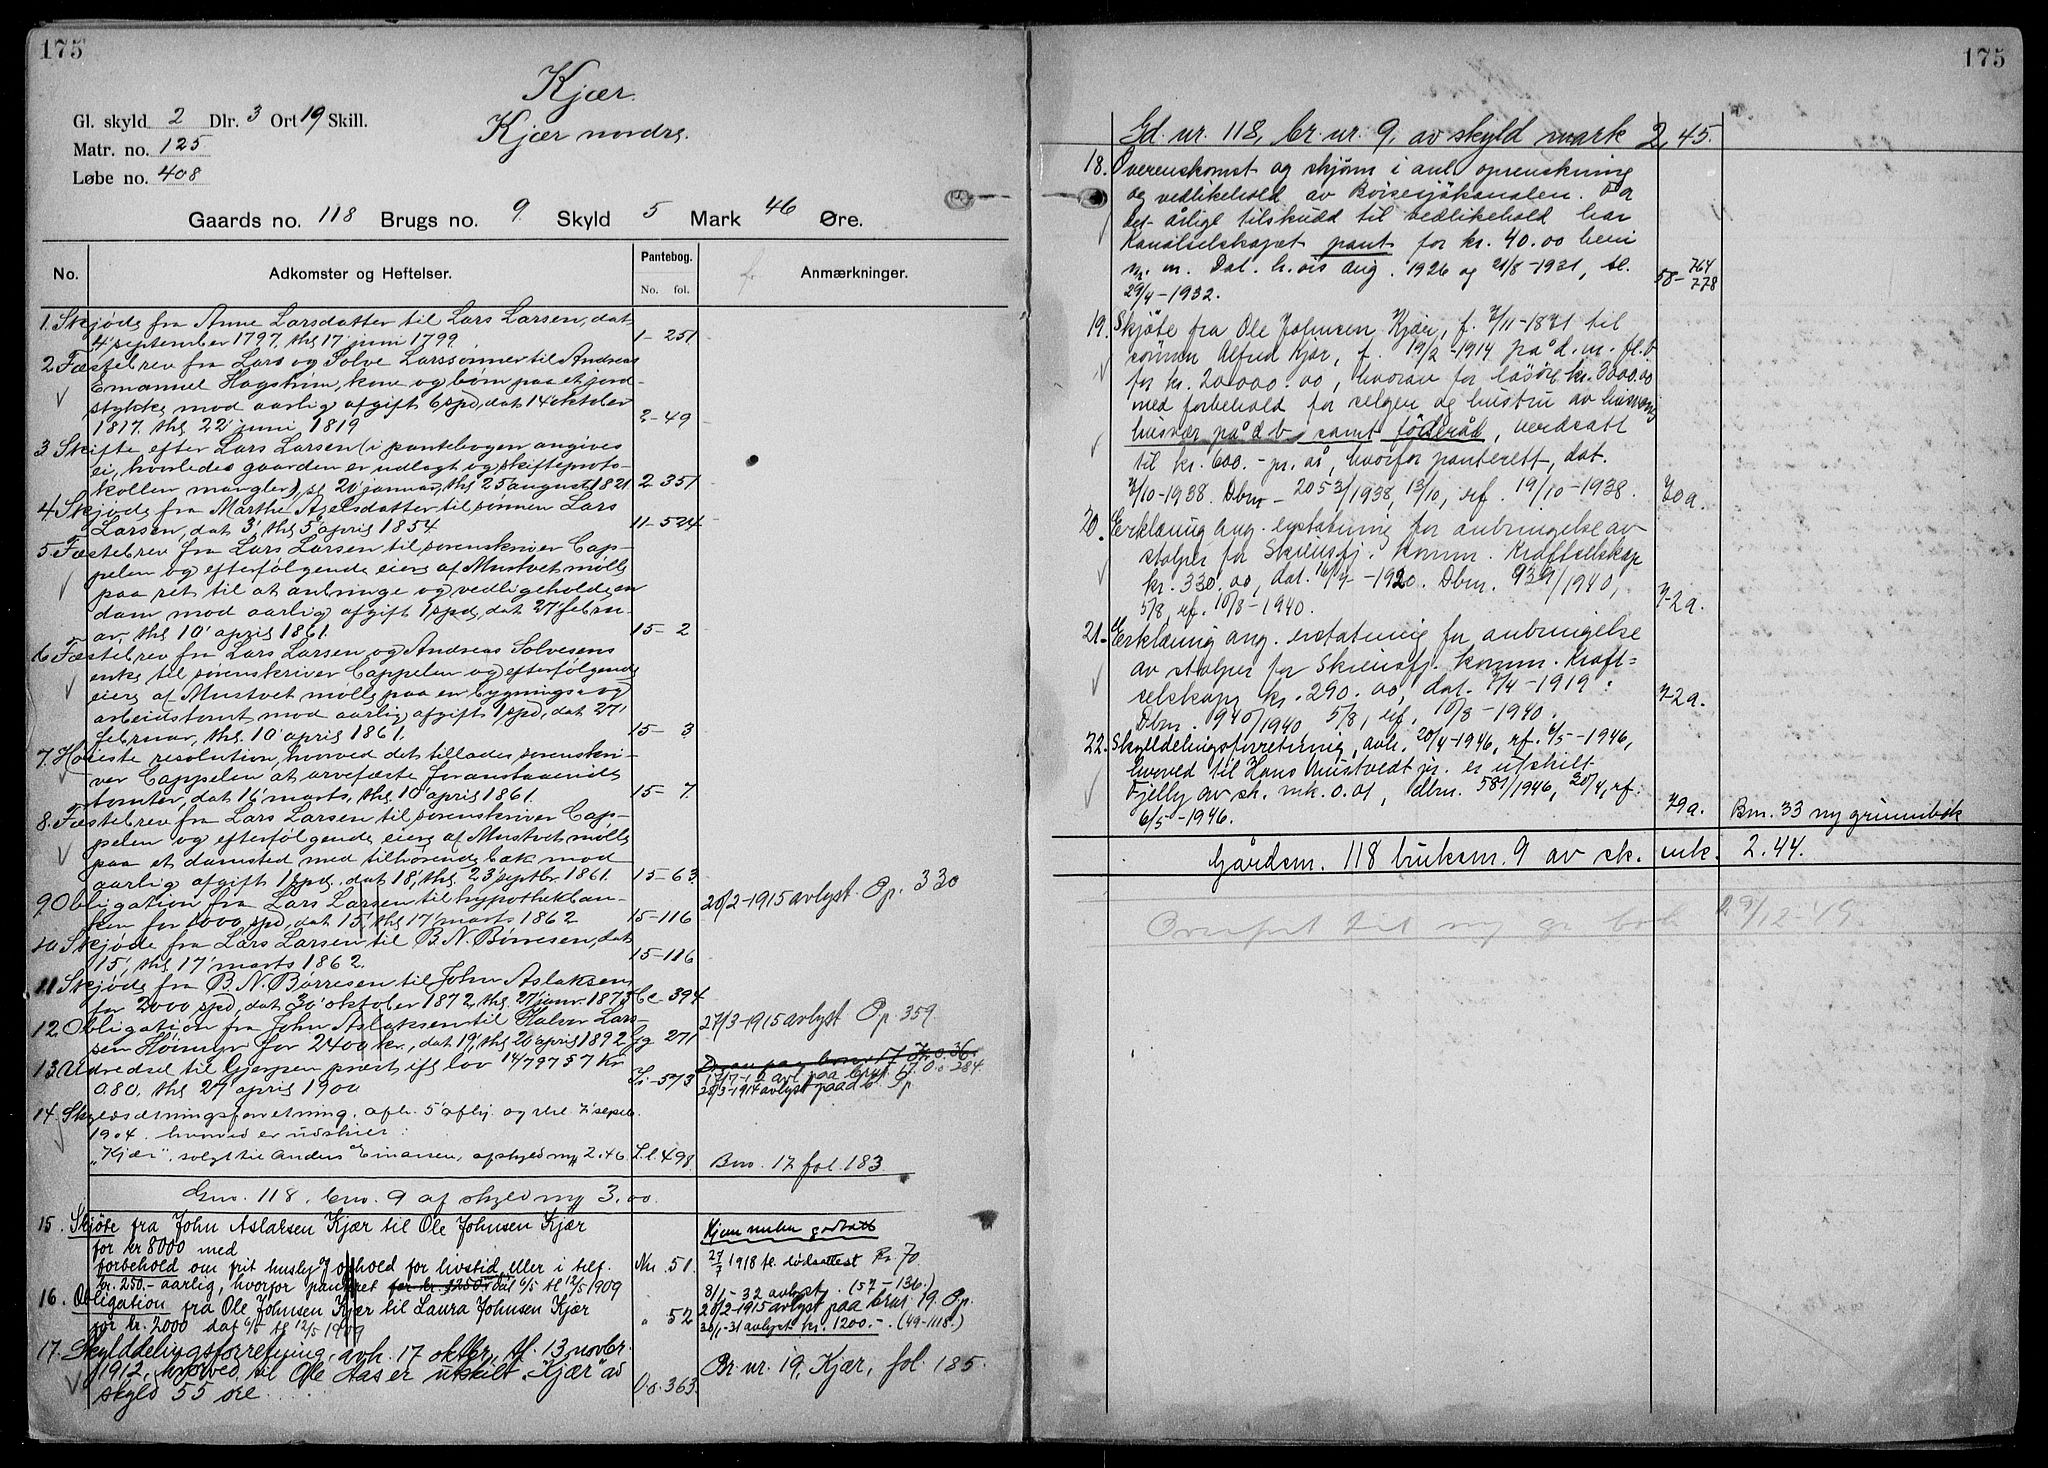 175
Kjær.
Kjær nordre.
Gl. skyld 2 Dlr. 3 Ort 19 Skill.
Matr. no. 125
Løbe no. 408
Gaards no. 118 Brugs no. 9. Skyld 5 Mark 46 Øre.
No. Adkomster og Heftelser. Pantebog. No. fol. Anmærkninger.
1. Skjøde fra Anne Larsdatter til Lars Larsen, dat.
4' september 1797. thl 17' juni 1799. 1-251
2. Fæstebrev fra Lars og Solve Larssønner til Andreas
Emanuel Hagstrøm, kone og børn paa et jord-
stykke mod aarlig afgift 6 spd, dat 14' oktober
1817. thl 22' juni 1819 2-49
3 Skifte efter Lars Larsen (i pantebogen angives
ei, hvorledes gaarden er udlagt og skifteproto-
kollen mangler), sl 20' januar, thl 25' august 1821. 2 351
4. Skjøde fra Marthe Axelsdatter til sønnen Lars
Larsen, dat 3' thl 5' april 1854. 11-524
5 Fæstebrev fra Lars Larsen til sorenskriver Cap-
pelen og efterfølgende eiere af Mustvet mølle
paa ret til at anbringe og vedligeholde en
dam mod aarlig afgift 1 spd, dat 27' febru-
ar, thl 10' april 1861. 15-2
6 Fæstebrev fra Lars Larsen og Andreas Solvesens
enke til sorenskriver Cappelen og efterfølgende
eiere af Mustvet mølle paa en bygnings- og
arbeidstomt mod aarlig afgift 1 spd, dat 27'
februar, thl. 10' april 1861. 15-3
7. Høieste resolution, hvorved det tillades sorenskri-
ver Cappelen at arvefæste foranstaaende
tomter, dat 16' marts, thl 10' april 1861. 15-7.
8. Fæstebrev fra Lars Larsen til sorenskriver Cap-
pelen og efterfølgende eiere af Mustvet mølle
paa et damsted med tilhørende bæk mod
aarlig afgift 1 spd. dat 18', thl 23' septbr. 1861. 15-63.
9. Obligation fra Lars Larsen til hypothekban-
ken for 1000 spd, dat 15', thl 17' marts 1862 15-116 20/2-1915 avlyst Op. 330
10 Skjøde fra Lars Larsen til B. N. Børresen, dat
15', thl 17' marts 1862. 15-116
11 Skjøde fra B. N. Børresen til John Aslaksen
for 2000 spd, dat 30' oktober 1872, thl. 27' janr. 1873 394
12. Obligation fra John Aslaksen til Halvor Lars-
sen Høimyr for 2400 kr., dat 19', thl 20' april 1892. Gg 271 27/3-1915 avlyst Op 359.
13. Udredsel til Gjerpen prest ifl lov 14/7 97 § 7 Kr
0.80. thl 27 april 1900 Ii-573 avl. paa brus 384.
28/3-1914 avlyst paa d.b. Op
14. Skyldsætningsforretning, afh. 5' afhj. og thl. 7' septb.
1904. hvorved er udskilt:
"Kjær", solgt til Anders Einarsen, af skyld mk 2.46. L.l. 498. Bno. 17 fol. 183
Gno. 118. bno. 9 af skyld mk 3.00.
15. Skjøte fra John Aslaksen Kjær til Ole Johnsen Kjær
for kr 8000 med
forbehold om frit husly og ophold for livstid eller i tilf.
kr. 250.- aarlig, hvorfor panteret for kr 1250 Dat 6/5 tl 12/5 1909 Nn. 51.
27/7 1918 tl. dødsattest Rr 70
8/1-32 avlyst (57-136.)
16. Obligation fra Ole Johnsen Kjær til Laura Johnsen Kjær
for kr. 2000 dat 6/5 tl 12/5 1909 " 52 20/2-1915 avlyst paa brus 19. Op.
30/1-31 avlyst kr. 1200.-. (49-1118.)
17. Skylddelingsforretning, avh. 17 oktbr, tl. 13 novbr.
1912, hvorved til Ole Aas er utskilt "Kjær" av
skyld 55 øre. O.o. 363. Br. nr. 19, Kjær, fol. 185.
175
Gd. nr. 118, br. nr. 9, av skyld mark 2,45.
18. Overenskomst og skjønn i anl. oprenskning
og vedlikehold av Børsesjøkanalen. For
det årlige tilskudd til vedlikehold har
Kanalselskapet pant for kr. 40.00 heri
m. m. Dat. h.vis Aug. 1926 og 21/8-1931, tl.
29/4-1932. 58-764/778
19. Skjøte fra Ole Johnsen Kjær, f. 7/11-1871 til
sønnen Alfred Kjær, f. 19/2-1914 på d. m. fl. b
for kr. 20 000.00, hvorav for løsøre kr. 3000.00
med forbehold for selgeren og hustru av
husvær på d b samt føderåd, verdsatt
til kr. 600.- pr. år, hvorfor panterett, dat.
7/10-1938. Dbnr - 2053/1938, 13/10, rf. 19/10-1938. 70a.
20. Erklæring ang. erstatning for anbringelse av
stolper for Skiensfj. komm. Kraftselskap
kr. 330.00, dat. 16/4-1920. Dbnr. 939/1940,
5/8, rf. 10/8-1940. 72a.
21. Erklæring ang. erstatning for anbringelse
av stolper for Skiensfj. komm. Kraft=
selskap, kr. 290.00, dat. 7/4-1919.
Dbnr. 940/1940 5/8, rf. 10/8-1940. 72a.
22. Skylddelingsforretning, avh. 20/4-1946, rf. 6/5-1946,
hvorved til Hans Mustvedt jr. er utskilt
Fjelly av sk. mk. 0.01, dbnr. 581/1946, 30/4, rf.
6/5-1946. 79a. Bnr. 33 ny grunnbok
Gårdsnr. 118 bruksnr. 9 av sk. mk. 2.44.
Overført til ny gr bok 29/12-49.